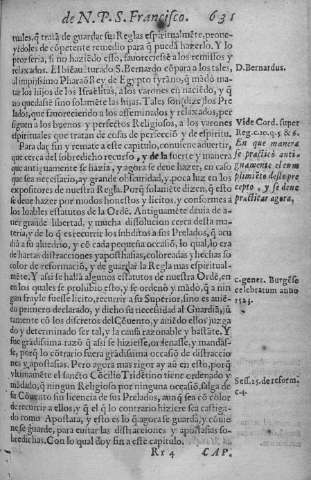 de N. P. S. Francisco. 631
tuales, q̃ tratã de guardar sus Reglas espiritualmẽte, proue-
yẽdoles de cõpetente remedio para q̃ puedã hazerlo. Y lo
proprio, si no haziẽdo esto, fauoreciesse a los remissos y
relaxados. El biẽauẽturado S. Bernardo cõpara a los tales,
al impiissimo Pharaõ Rey de Egypto tyrano, q̃ mãdò ma-
tar los hijos de los Israelitas, a los varones en naciẽdo, y q̃
no quedasse sino solamẽte las hijas. Tales son (dize) los Pre
lados, que fauoreciendo a los assemejados y relaxados, per
siguen a los buenos y perfectos Religiosos, a los varones
espirituales que tratan de cosas de perfecciõ y de espiritu.
Para dar fin y remate a este capitulo, conuiene aduertir,
que cerca del sobredicho recurso, y de la fuerte y manera
que antiguamente se hazia, y agora se deue hazer, en caso
que sea necessario, ay grande obscuridad, y poca luz en los
expositores de nuestra Regla. Porq̃ solamẽte dizen, q̃ esto
se deue hazer por modos honestos y licitos, y conformes a
los loables estatutos de la Ordẽ. Antiguamẽte deuia de a-
uer grande libertad, y mucha dissolucion cerca desta ma-
teria, y de lo q̃ es recurrir los subditos a sus Prelados, q̃ acu
dia a su aluedrio, y cõ cada pequeña occasiõ, lo qual, lo era
de hartas distracciones y apostasias, coloradas y hechas so
color de reformaciõ, y de guardar la Regla mas espiritual-
mẽte. Y assi se hallã algunos estatutos de nuestra Ordẽ, en
los quales se prohibio esto, y se ordenò y mãdò, q̃ a nin
gun frayle fuesse licito, recurrir a su Superior, sino es auiẽ-
do primero declarado, y dicho su necessidad al Guardiã, ju
tamente cõ los discretos del Cõuento, y auiẽdo ellos juzga
do y determinado ser tal, y la causa razonable y bastãte. Y
fue gradissima razõ q̃ assi se hiziesse, ordenasse, y mandas-
se, porq̃ lo contrario fuera grãdissima occasiõ de distraccio
nes y apostasias. Pero agora mas rigor ay aũ en esto, porq̃
vltimamẽte el sancto Cõcilio Tridẽtino tiene ordenado y
mãdado, q̃ ningun Religioso por ninguna occasiõ, salga de
su Cõuento sin licencia de sus Prelados, aunq̃ sea cõ color
de recurrir a ellos, y q̃ el q̃ lo contrario hiziere sea castiga-
do como Apostata, y esto es lo q̃ agora se guarda, y cõuie
ne se guarde, para euitar las distracciones y apostasias so-
bredichas. Con lo qual doy fin a este capitulo.
Rr 4 CAP.
D. Bernardus.
Vide Cord. super
Reg. c. 10. q. 5. & 6.
En que manera
se practicò anti-
guamente
pto, y se deue
practicar agora.
C. gener. Burgẽse
celebratum anno
1523.
Sess. 25. de reform.
c. 4.